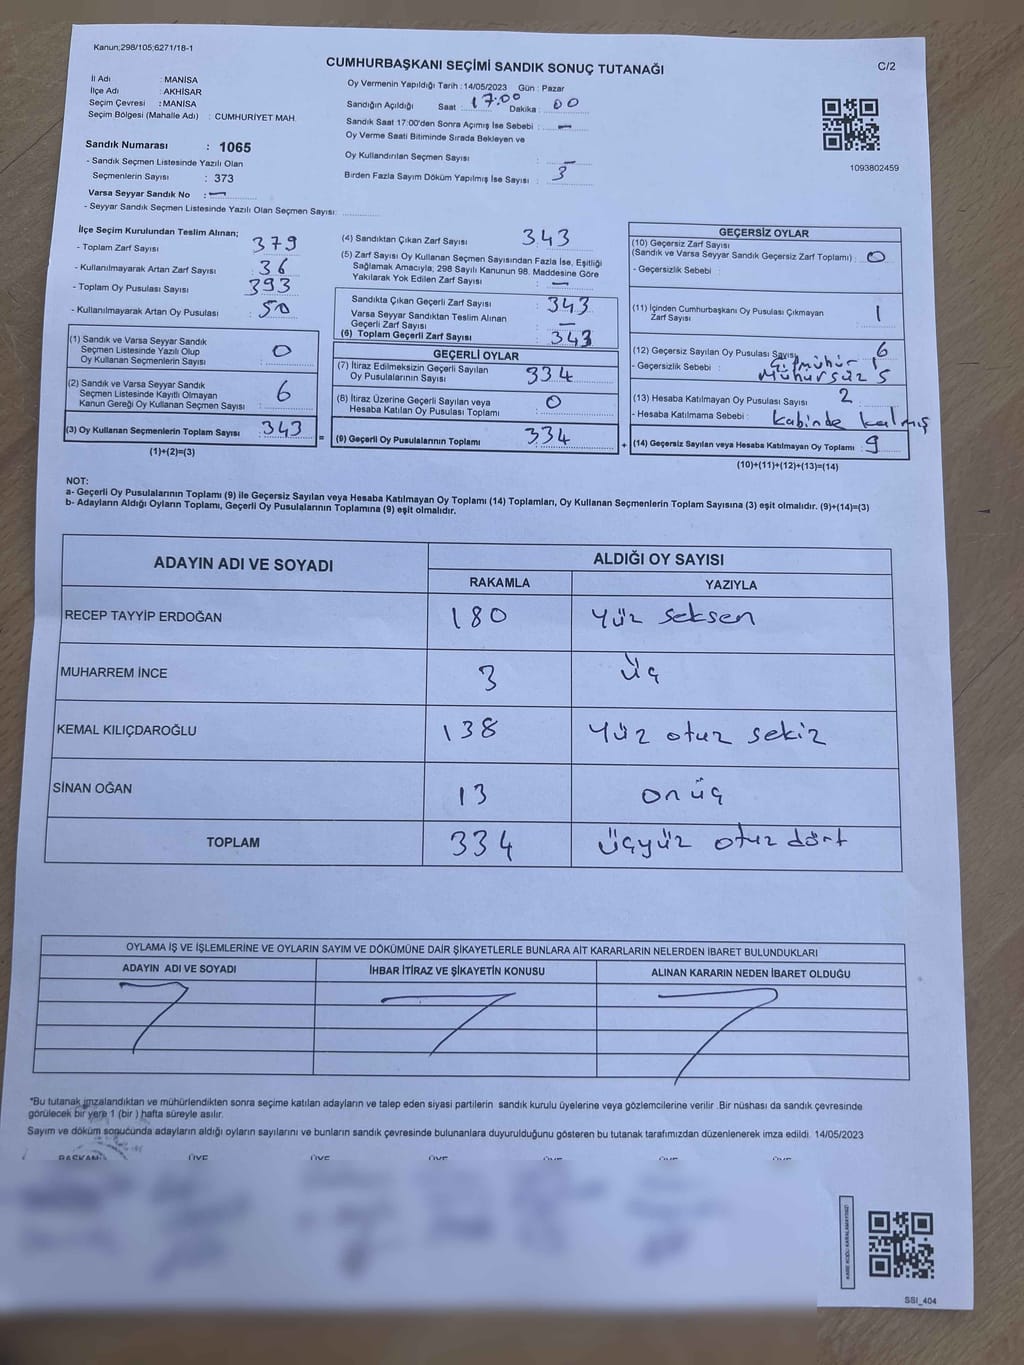 Kanun;298/105;6271/18-1
CUMHURBAŞKANI SEÇİMİ SANDIK SONUÇ TUTANAĞI
C/2
İl Adı : MANİSA
İlçe Adı : AKHİSAR
Seçim Çevresi : MANİSA
Seçim Bölgesi (Mahalle Adı) : CUMHURİYET MAH.
Sandık Numarası : 1065
- Sandık Seçmen Listesinde Yazılı Olan
Seçmenlerin Sayısı : 373
Varsa Seyyar Sandık No : —
- Seyyar Sandık Seçmen Listesinde Yazılı Olan Seçmen Sayısı:
Oy Vermenin Yapıldığı Tarih : 14/05/2023 Gün : Pazar
Sandığın Açıldığı Saat : 17:00 Dakika : 00
Sandık Saat 17:00'den Sonra Açımış İse Sebebi : —
Oy Verme Saati Bitiminde Sırada Bekleyen ve
Oy Kullandırılan Seçmen Sayısı : —
Birden Fazla Sayım Döküm Yapılmış İse Sayısı : 3
1093802459
İlçe Seçim Kurulundan Teslim Alınan;
- Toplam Zarf Sayısı : 379
- Kullanılmayarak Artan Zarf Sayısı : 36
- Toplam Oy Pusulası Sayısı : 393
- Kullanılmayarak Artan Oy Pusulası : 50
(1) Sandık ve Varsa Seyyar Sandık
Seçmen Listesinde Yazılı Olup
Oy Kullanan Seçmenlerin Sayısı : 0
(2) Sandık ve Varsa Seyyar Sandık
Seçmen Listesinde Kayıtlı Olmayan
Kanun Gereği Oy Kullanan Seçmen Sayısı : 6
(3) Oy Kullanan Seçmenlerin Toplam Sayısı : 343
(1)+(2)=(3)
(4) Sandıktan Çıkan Zarf Sayısı : 343
(5) Zarf Sayısı Oy Kullanan Seçmen Sayısından Fazla İse, Eşitliği
Sağlamak Amacıyla; 298 Sayılı Kanunun 98. Maddesine Göre
Yakılarak Yok Edilen Zarf Sayısı : —
Sandıkta Çıkan Geçerli Zarf Sayısı : 343
Varsa Seyyar Sandıktan Teslim Alınan
Geçerli Zarf Sayısı : —
(6) Toplam Geçerli Zarf Sayısı : 343
GEÇERLİ OYLAR
(7) İtiraz Edilmeksizin Geçerli Sayılan
Oy Pusulalarının Sayısı : 334
(8) İtiraz Üzerine Geçerli Sayılan veya
Hesaba Katılan Oy Pusulası Toplamı : 0
= (9) Geçerli Oy Pusulalarının Toplamı : 334
GEÇERSİZ OYLAR
(10) Geçersiz Zarf Sayısı
(Sandık ve Varsa Seyyar Sandık Geçersiz Zarf Toplamı) : 0
- Geçersizlik Sebebi :
(11) İçinden Cumhurbaşkanı Oy Pusulası Çıkmayan
Zarf Sayısı : 1
(12) Geçersiz Sayılan Oy Pusulası Sayısı : 6
- Geçersizlik Sebebi : mühür 1
Mühürsüz 5
(13) Hesaba Katılmayan Oy Pusulası Sayısı : 2
- Hesaba Katılmama Sebebi : kabinde kalmış
+ (14) Geçersiz Sayılan veya Hesaba Katılmayan Oy Toplamı : 9
(10)+(11)+(12)+(13)=(14)
NOT:
a- Geçerli Oy Pusulalarının Toplamı (9) ile Geçersiz Sayılan veya Hesaba Katılmayan Oy Toplamı (14) Toplamları, Oy Kullanan Seçmenlerin Toplam Sayısına (3) eşit olmalıdır. (9)+(14)=(3)
b- Adayların Aldığı Oyların Toplamı, Geçerli Oy Pusulalarının Toplamına (9) eşit olmalıdır.
ADAYIN ADI VE SOYADI
ALDIĞI OY SAYISI
RAKAMLA YAZIYLA
RECEP TAYYİP ERDOĞAN 180 Yüz seksen
MUHARREM İNCE 3 üç
KEMAL KILIÇDAROĞLU 138 Yüz otuz sekiz
SİNAN OĞAN 13 onüç
TOPLAM 334 üçyüz otuz dört
OYLAMA İŞ VE İŞLEMLERİNE VE OYLARIN SAYIM VE DÖKÜMÜNE DAİR ŞİKAYETLERLE BUNLARA AİT KARARLARIN NELERDEN İBARET BULUNDUKLARI
ADAYIN ADI VE SOYADI İHBAR İTİRAZ VE ŞİKAYETİN KONUSU ALINAN KARARIN NEDEN İBARET OLDUĞU
*Bu tutanak imzalandıktan ve mühürlendikten sonra seçime katılan adayların ve talep eden siyasi partilerin sandık kurulu üyelerine veya gözlemcilerine verilir .Bir nüshası da sandık çevresinde
görülecek bir yere 1 (bir ) hafta süreyle asılır.
Sayım ve döküm sonucunda adayların aldığı oyların sayılarını ve bunların sandık çevresinde bulunanlara duyurulduğunu gösteren bu tutanak tarafımızdan düzenlenerek imza edildi. 14/05/2023
BAŞKAN ÜYE ÜYE ÜYE ÜYE ÜYE ÜYE
KARE KODU KARALAMAYINIZ!
SSI_404